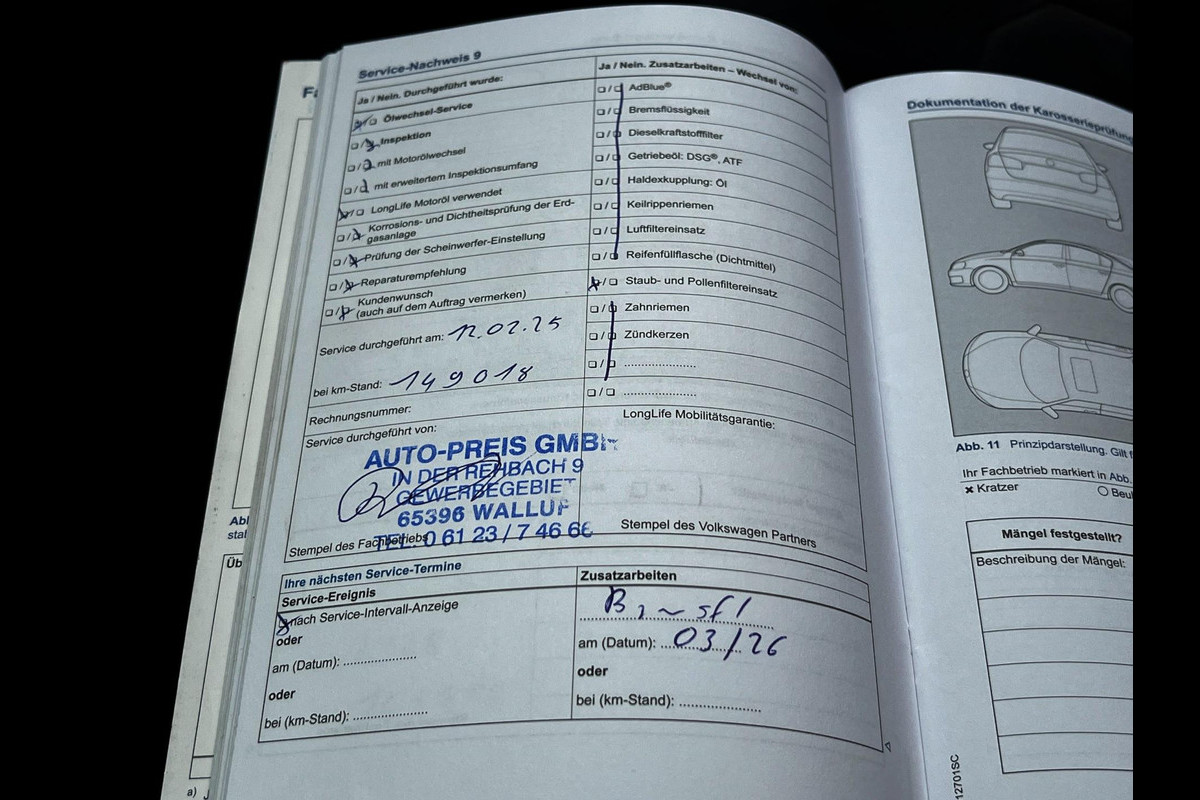 Service-Nachweis 9
Ja / Nein. Durchgeführt wurde:
☒/☐ Ölwechsel-Service
☐/☒ Inspektion
☐/☒ mit Motorölwechsel
☐/☒ mit erweitertem Inspektionsumfang
☒/☐ LongLife Motoröl verwendet
☐/☒ Korrosions- und Dichtheitsprüfung der Erd-
gasanlage
☐/☒ Prüfung der Scheinwerfer-Einstellung
☐/☒ Reparaturempfehlung
☐/☒ Kundenwunsch
(auch auf dem Auftrag vermerken)
Service durchgeführt am: 12.02.25
bei km-Stand: 149018
Rechnungsnummer:
Service durchgeführt von:
AUTO-PREIS GMBH
IN DER REHBACH 9
GEWERBEGEBIET
65396 WALLUF
TEL. 0 61 23 / 7 46 66
Stempel des Fachbetriebs
Ja / Nein. Zusatzarbeiten – Wechsel von:
☐/☐ AdBlue®
☐/☐ Bremsflüssigkeit
☐/☐ Dieselkraftstofffilter
☐/☐ Getriebeöl: DSG®, ATF
☐/☐ Haldexkupplung: Öl
☐/☐ Keilrippenriemen
☐/☐ Luftfiltereinsatz
☐/☐ Reifenfüllflasche (Dichtmittel)
☒/☐ Staub- und Pollenfiltereinsatz
☐/☐ Zahnriemen
☐/☐ Zündkerzen
☐/☐ ....................
☐/☐ ....................
LongLife Mobilitätsgarantie:
Stempel des Volkswagen Partners
Ihre nächsten Service-Termine
Service-Ereignis
☒ nach Service-Intervall-Anzeige
oder
am (Datum): ....................
oder
bei (km-Stand): ....................
Zusatzarbeiten
am (Datum): 03/26
oder
bei (km-Stand): ....................
Dokumentation der Karosserieprüfung
Abb. 11 Prinzipdarstellung. Gilt
Ihr Fachbetrieb markiert in Abb.
× Kratzer
○
Mängel festgestellt?
Beschreibung der Mängel:
12701SC
a)